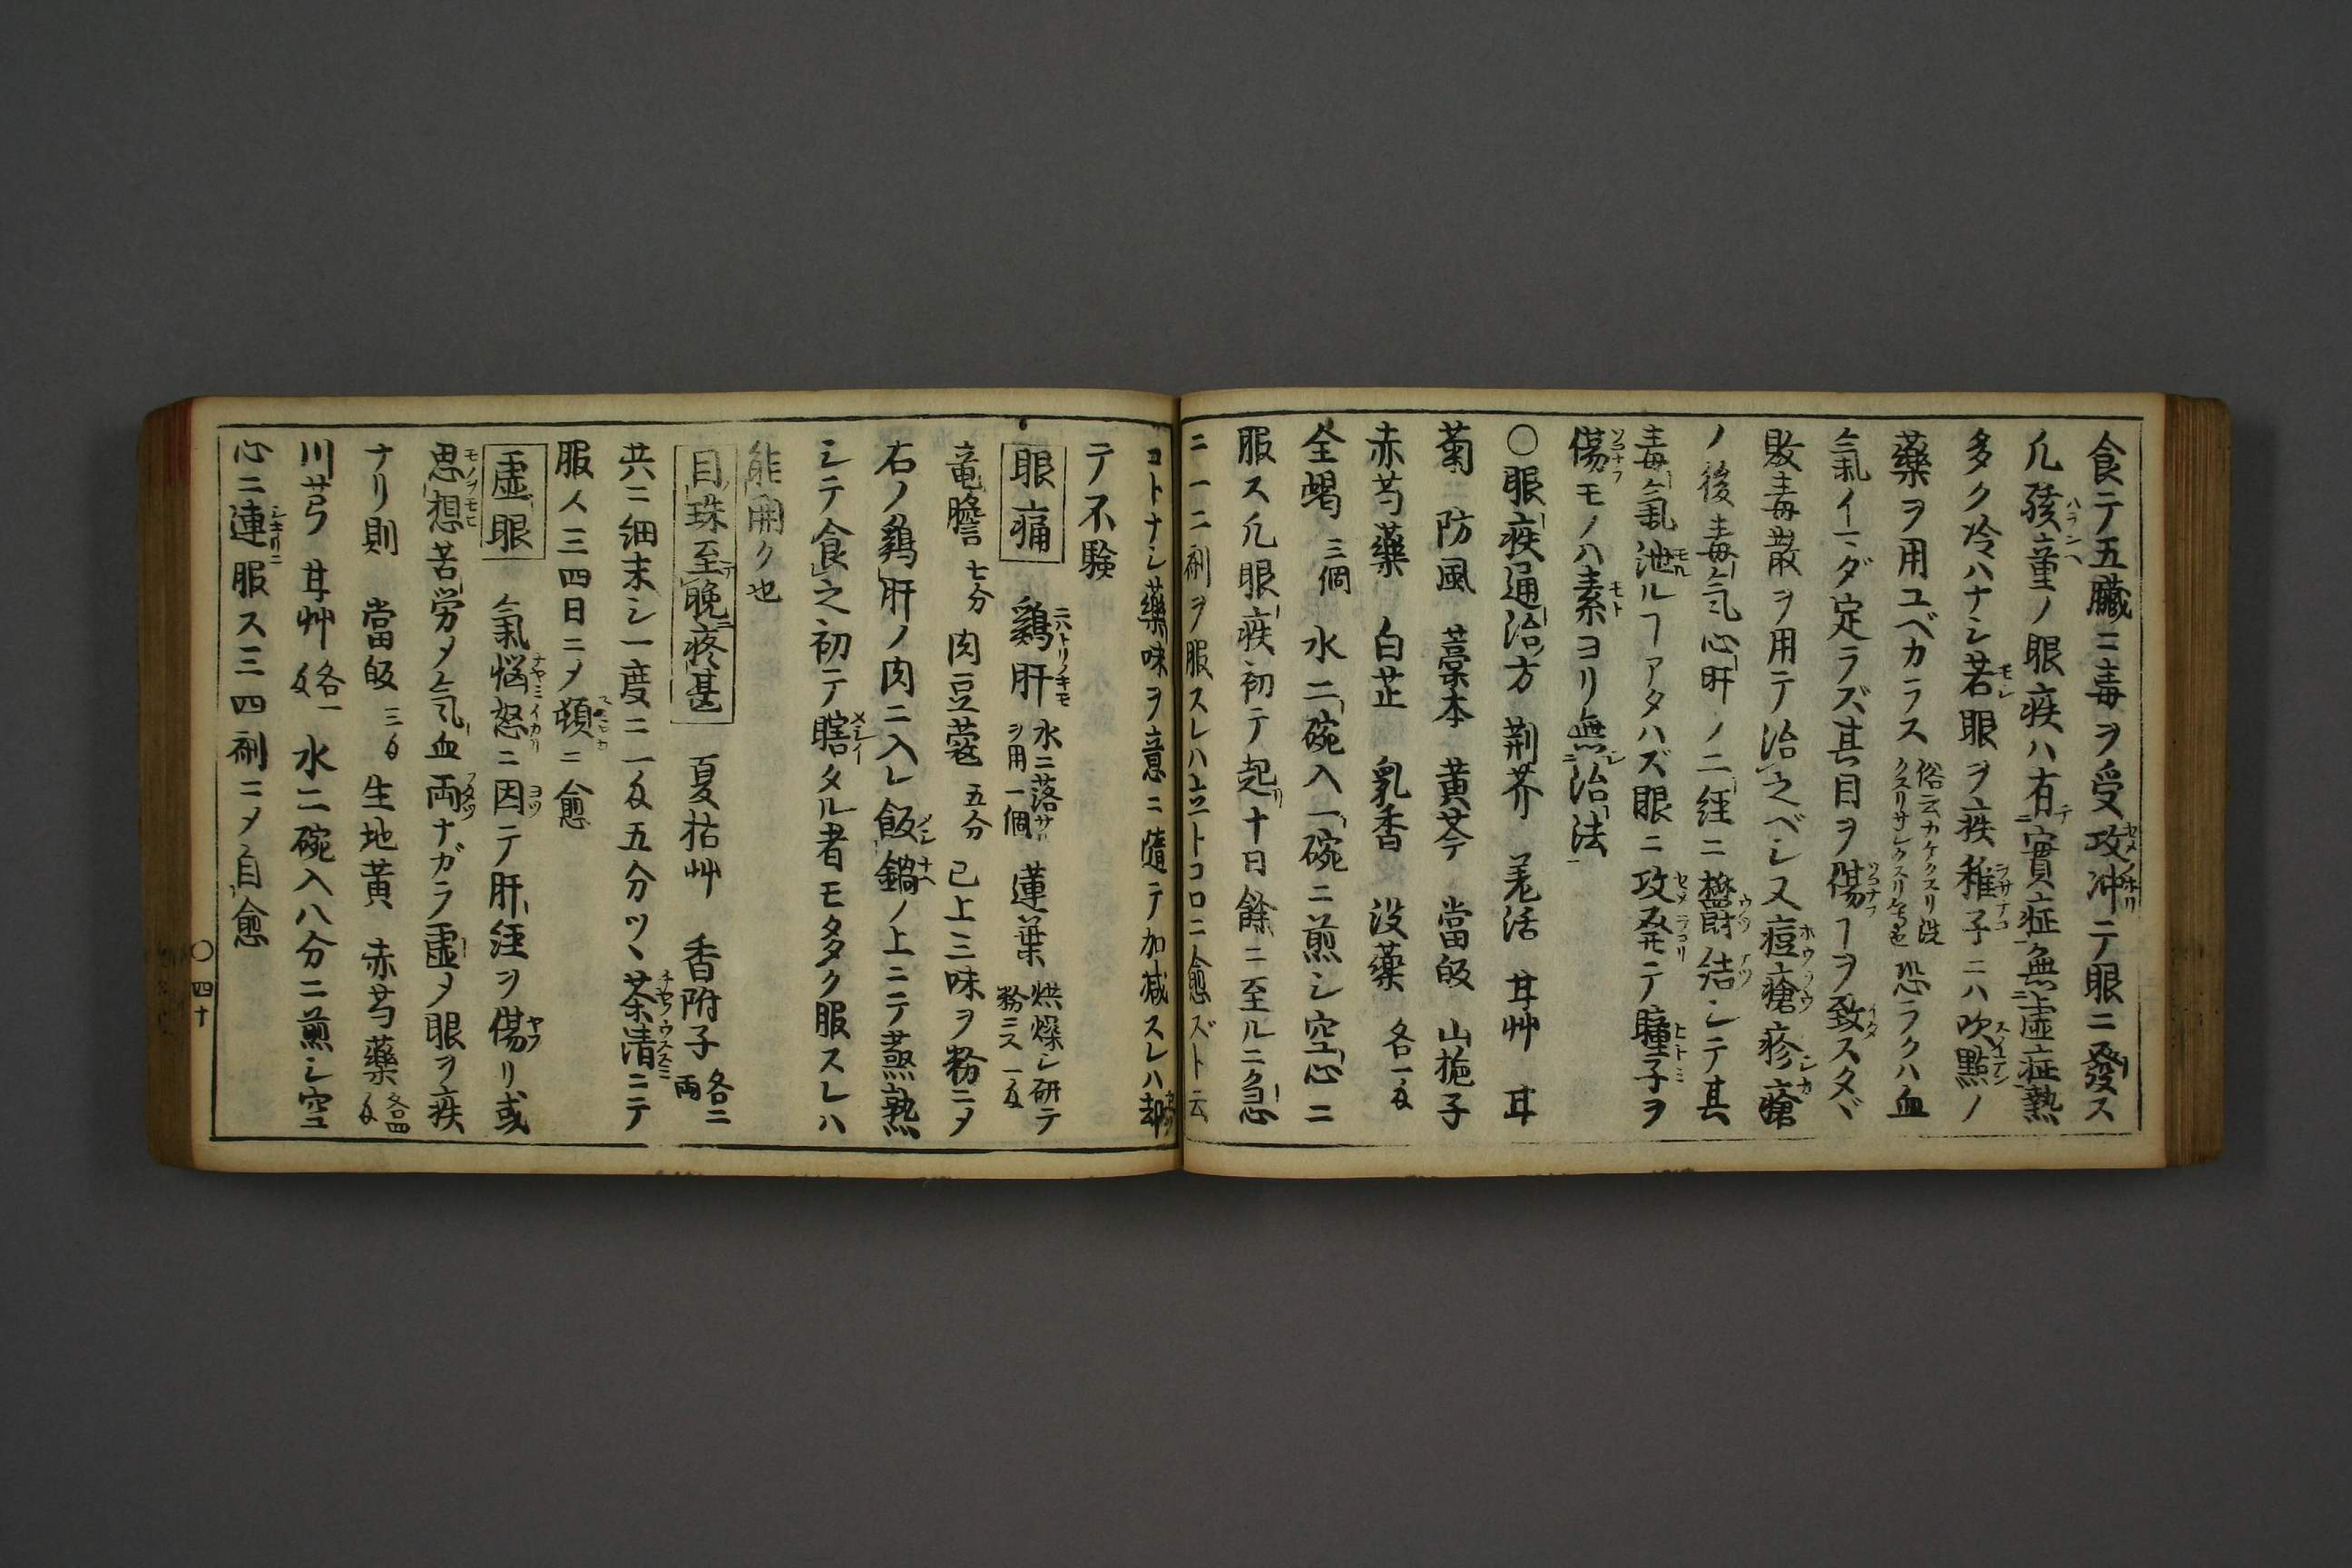 食テ五臓ニ毒ヲ受攻冲テ眼ニ發ス
凡孩童ノ眼疾ハ有實症無虚症熱
多ク冷ハナシ若眼ヲ疾稚子ニハ吹點ノ
藥ヲ用ユベカラス 俗云カケクスリ洗クスリサシクスリ等也 恐ラクハ血
氣イマダ定ラズ其目ヲ傷ヿヲ致スタヾ
敗毒散ヲ用テ治之ベシ又痘瘡疹瘡
ノ後毒氣心肝ノ二経ニ欝結シテ其
毒氣池ルヿアタハズ眼ニ攻発テ瞳子ヲ
傷モノハ素ヨリ無治法
〇眼疾通治方 荆芥 羗活 甘艸 甘
菊 防風 藁本 黄芩 當皈 山梔子
赤芍藥 白芷 乳香 没藥 各一匁
全蝎 三個 水二碗入一碗ニ煎シ空心ニ
服ス凡眼疾初テ起リ十日餘ニ至ルニ急
ニ一二劑ヲ服スレハ立トコロニ愈ズト云
コトナシ藥味ヲ意ニ隨テ加減スレハ却
テ不験
眼痛 鷄肝 水ニ落サルヲ用一個 蓮葉 烘燥シ研テ粉ニス一匁
竜膽 七分 肉豆蔲 五分 已上三味ヲ粉ニメ
右ノ鷄肝ノ肉ニ入レ飯鍋ノ上ニテ蒸熟
シテ食之初テ瞎タル者モ多ク服スレハ
能開ク也
目珠至晩疼甚 夏枯艸 香附子 各二両
共ニ細末シ一度ニ一匁五分ツヽ茶清ニテ
服人三四日ニメ頓ニ愈
虚眼 氣悩怒ニ因テ肝経ヲ傷リ或
思想苦労メ氣血両ナガラ虚メ眼ヲ疾
ナリ則 當皈 三匁 生地黄 赤芍藥 各四匁
川芎 甘艸 各一匁 水二碗入八分ニ煎シ空
心ニ連服ス三四劑ニメ自愈
〇四十